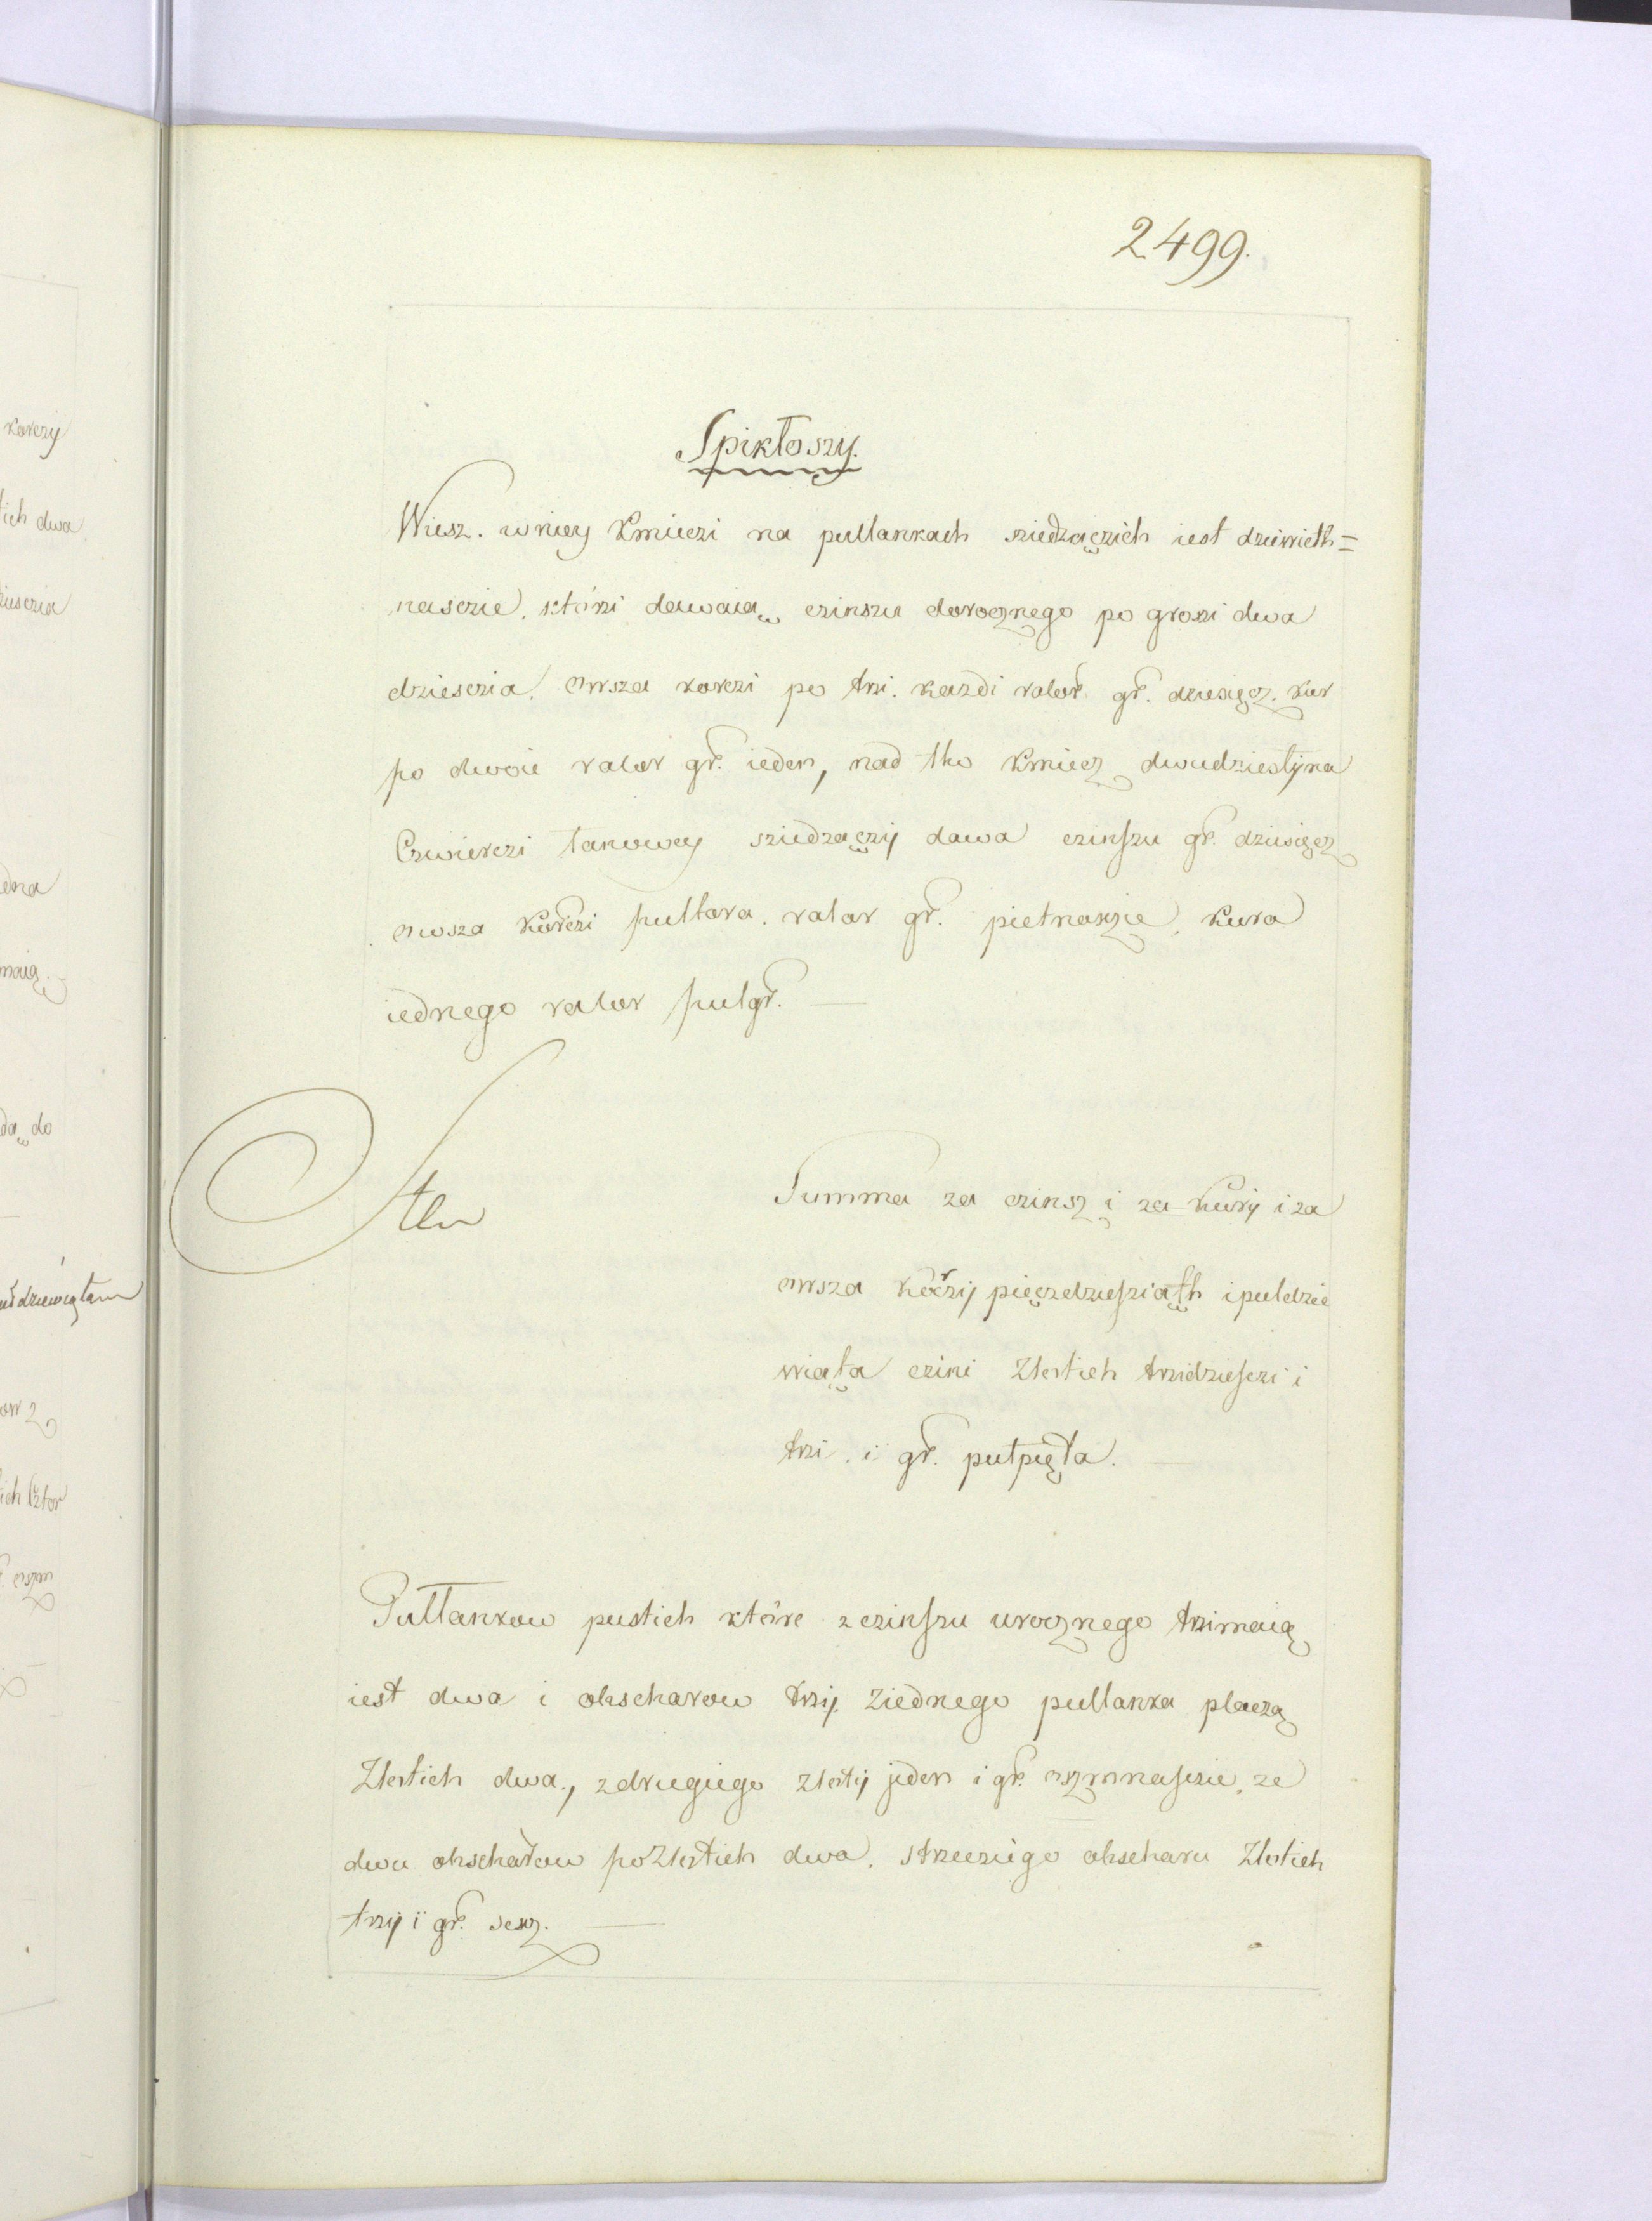 2499.
Spikłoszy.
Wiesz. w niey Kmieczi na pullankach sziedzączich iest dziewieth=
nasczie, którzi dawaią czinszu dorocznego po groszi dwa
dziesczia. owsza korczi po trzi. kazdi valor gr. dziesięcz. kur
po dwoie valor gr. ieden, nad tho kmiecz dwudziestÿ na
Czwierczi łanowey sziedzączÿ dawa czinszu gr. dziesięcz
owsza korczi pułtora. valor gr. pietnasczie. kura
iednego valor pulgr.
Summa za czinsz i za kurÿ i za
owsza korzÿ pięczdziesziąth i puldzie
wiąta czini Złotich trzidziesczi i
trzi. i gr. pułpięta.
Pułlankow pustich które z czinszu urocznego trzimaią
iest dwa i obscharow trzÿ. Ziednego pullanka placzą
Złotich dwa, z drugiego złotÿ jeden i gr. oszmnasczie. ze
dwu obscharow po Złotich dwa. s trzeciego obscharu Złotich
trzÿ i gr. sesz.
karczÿ
tich dwa
dziesczia
edna
maią
dą do
uł dziewiątam
ow z
ich Cztor
oszm